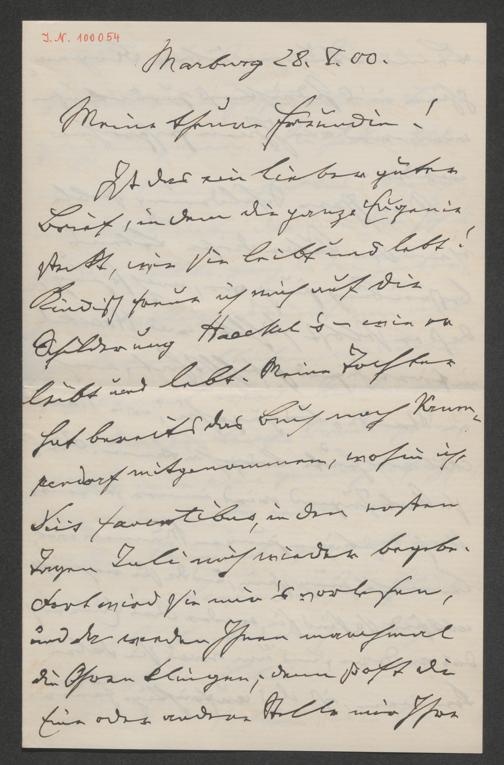 J. N. 100054
Marburg 28. V. 00.
Meine theure Freundin!
Ist das ein lieber guter
Brief, in dem die ganze Eugenie
steckt, wie sie leibt und lebt!
Kindisch freue ich mich auf die
Schilderung Haeckel's – wie er
leibt und lebt. Meine Tochter
hat bereits das Buch nach Krum-
pendorf mitgenommen, wohin ich,
Diis faventibus, in den ersten
Tagen Juli mich wieder begebe.
Dort wird sie mir's vorlesen,
und da werden Ihnen manchmal
die Ohren klingen, denn oft die
Eine oder andere Stelle mir Ihre